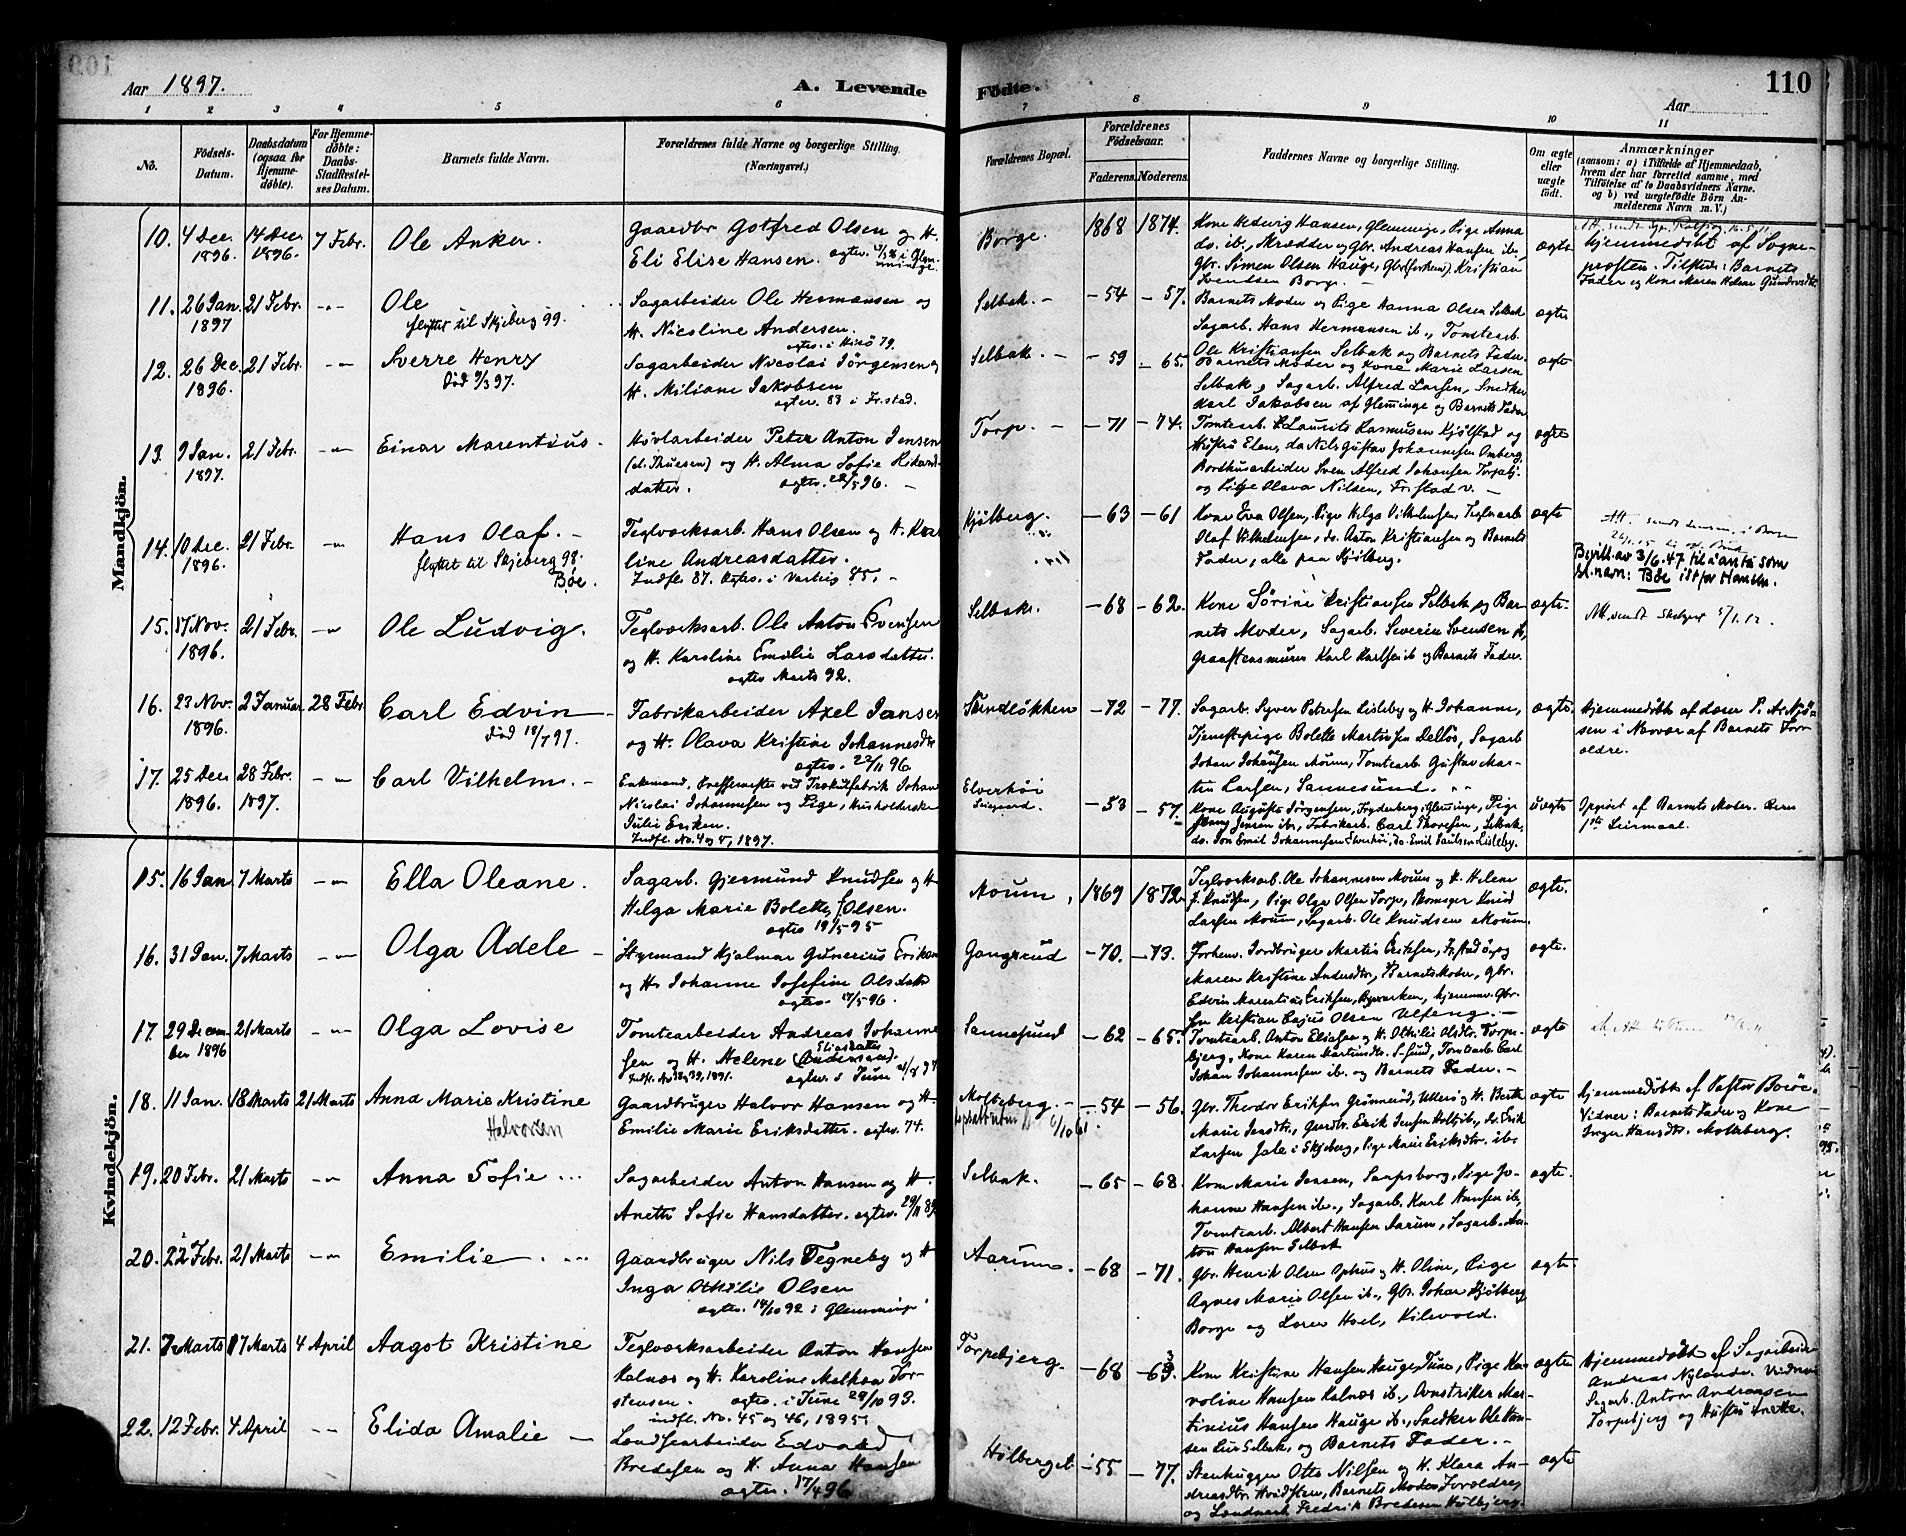 Aar 1897.
A. Levende
Fødte.
110
Aar
1 2 3 4 5 6 7 8 9 10 11
No.
Fødsels-
Datum.
Daabsdatum
(ogsaa for
Hjemme-
døbte).
For Hjemme-
døbte:
Daabs-
Stadfæstel-
ses Datum.
Barnets fulde Navn.
Forældrenes fulde Navne og borgerlige Stilling.
(Næringsvei.)
Forældrenes Bopæl.
Forældrenes
Fødselsaar.
Faderens. Moderens.
Faddernes Navne og borgerlige Stilling.
Om ægte
eller
uægte
født.
Anmærkninger
(saasom: a) i Tilfælde af Hjemmedaab,
hvem der har forrettet samme, med
Tilføielse af to Daabsvidners Navne.
og b) ved uægtefødte Børn An-
melderens Navn m. V.)
Mandkjön.
10. 4 Dec. 1896. 14 Dec. 1896. 7 Febr. Ole Anker.
Gaardbr Gotfred Olsen og H.
Eli Elise Hansen.
Borge. 1868 1874.
Kone Hedvig Hansen, Glemminge, Pige Anna
do. ib., Skrædder og Gbr. Andreas Hansen ib.
Gbr. Simen Olsen Hauge, Gbr(forhen) Kristian
Svendsen Borge.
ægte
Hjemmedöbt af Sogne-
præsten. Tilstede: Barnets
Fader og Kone Maren Helene
11. 26 Jan. 1897 21 Febr. -"- Ole
flyttet til Skjeberg 99.
Sagarbeider Ole Hermansen og
H. Nicoline Andersen.
ægtev. i 79.
Selbak. - -54 -57.
Barnets Moder og Pige Hanna Olsen Selbak
Sagarb. Hans Hermansen ib., Tomtearb.
Ole Kristiansen Selbak og Barnets Fader.
ægte
12. 26 Dec. 1896. 21 Febr. -"- Sverre Henry
Död 9/3 97.
Sagarbeider Nicolai Jörgensen og
H. Miliane Jakobsen
ægtev. 83 i Fr.stad.
Selbak. - -59 -65.
Barnets Moder og Kone Marie Larsen
Selbak, Sagarb. Alfred Larsen, Snedker
Karl Jakobsen af Glemminge og Barnets Fader
ægte
13. 9 Jan. 1897. 21 Febr. -"- Einar Marentius.
Hövlarbeider Peter Anton Jensen
og H. Alma Sofie Rikard-
datter. ægtev. 96.
Torp. - -71 -74.
Tomtearb. Laurits Rasmussen Kjölstad og
Hustru Elen, da Nils Gustav Johannesen Omberg,
Bordhusarbeider Sven Alfred Johansen Torpebj.
og Pige Olava Nilsen, Fr.stad v.
ægte
14. 10 Dec. 1896. 21 Febr. -"- Hans Olaf. -
flyttet til Skjeberg 98.
Bøe.
Teglværksarb. Hans Olsen og H. Karo-
line Andreasdatter.
Indfl. 87. ægtev. i Varteig 85.
Kjölberg. -63 -61
Kone Eva Olsen, Pige Helga Vilhelmsen, Teglvarb
Olaf Vilhelmsen, do. Anton Kristiansen og Barnets
Fader, alle paa Kjölberg.
ægte
Bevill. av 3/6.47 til å anta som
sl.navn: Bøe istf or Hansen.
15. 17 Nov. 1896. 21 Febr. -"- Ole Ludvig.
Teglværksarb. Ole Anton Evensen
og H. Karoline Emilie Larsdatter.
ægtev. Marts 92.
Selbak. -68 -62.
Kone Sörine Kristiansen Selbak og Bar-
nets Moder, Sagarb. Severin Svensen ib,
Graastensmurer Karl Karlsen ib og Barnets Fader.
ægte.
16. 23 Nov. 1896. 2 Januar 28 Febr. Carl Edvin
Död 97.
Fabrikarbeider Axel Jansen
og H. Olava Kristine Johannesdtr
ægtev. 22/11 96
-72 -77.
Sagarb. Syver Petersen Lisleby og H. Johanne,
Tjenestepige Bolette Martinsen Dellös, Sagarb
Johan Johansen Moum, Tomtearb. Gustav Mar-
tin Larsen, Sannesund.
ægte.
Hjemmedöbt af Lærer
i Nærvær af Barnets For-
ældre.
17. 25 Dec. 1896. 28 Febr. 1897. -"- Carl Vilhelm. -
Enkemand, ved Trækulfabrik Johan
Nicolai Johannesen og Pige, Husholderske
Julie Eriksen.
Indfl. No. 4 og 5, 1897.
Elverhöi
-53 -57
Kone Augusta Jörgensen, Glemminge, Pige
Jensen ib., Fabrikarb. Carl Thoresen, Selbak,
do. Jon Emil Johannesen Elverhöi, do. Emil Paulsen Lisleby.
Uægte
Opgivet af Barnets Moder. Deres
1ste Leiermaal.
Kvindekjön.
15. 16 Jan 7 Marts -"- Ella Oleane.
Sagarb. Gjermund Knudsen og H
Helga Marie Bolette Olsen.
ægtev. 19/5 95
Moum, 1869 1872.
Teglværksarb. Ole Johannesen Moum og H. Helene
Knudsen, Pige Olga Olsen Torp, Knud
Larsen Moum, Sagarb. Ole Knudsen Moum.
ægte.
16. 31 Jan. 7 Marts -"- Olga Adele -
Hjalmar Gunerius Eriksen
og H. Johanne Josefine Olsdatter
ægtev. 17/5 96.
Gangsrud -70. -73.
Forhenv. Jordbruger Martin Eriksen, og
Maren Kristine Andersdtr, Barnets Moder, Gbr.
Edvin Marentius Eriksen, Gbr.
Kristian Cajus Olsen
ægte.
17. 29 Decem-ber 1896 21 Marts -"- Olga Lovise
Tomtearbeider Andreas Johanne-
sen og H. Helene Eliasdatter (Andersen).
ægtev. i Tune
Sannesund -62 -65.
Tomtearb. Anton Eliasen og H. Othilie Olsdtr. Torpe-
bjerg, Kone Karen Martinsdtr. S-sund, Tomtearb Carl
Johan Johannesen ib. og Barnets Fader. -
ægte
18. 11 Jan. 18 Marts 21 Marts Anna Marie Kristine
Halvorsen
Gaardbruger Halvor Hansen og H.
Emilie Marie Eriksdatter. ægtev. 74.
Molteberg. - -54 -56.
Gbr. Theodor Eriksen Grönneröd, og H. Berthe
Marie Larsdtr., Gaardbr. Erik Jensen ib., do. Erik
Larsen i Skjeberg, Pige Marie Eriksdtr. ib.
ægte
Hjemmedöbt af Pastor
Vidner: Barnets Fader og Kone
Inger Hansdtr. Molteberg.
19. 20 Febr. 21 Marts -"- Anna Sofie ...
Sagarbeider Anton Hansen og H.
Anette Sofie Hansdatter. ægtev. 29/11 89
Selbak. -65 -68.
Kone Marie Jensen, Sarpsborg, Pige Jo-
hanne Hansen ib., Sagarb. Karl Hansen ib,
Tomtearb. Albert Hansen Aarum, Sagarb. An-
ton Hansen Selbak
ægte.
20. 22 Febr. 21 Marts -"- Emilie
Gaardbruger Nils Tegneby og H
Inga Othilie Olsen
ægtev. 14/10 92 i Glemminge
Aarum. -68 -71.
Gbr. Henrik Olsen Ophus og H. Oline, Pige
Agnes Marie Olsen ib., Gbr. Johan Kjölberg
Borge og Lorens Hoel, Kilevold.
ægte.
21. 7 Marts 17 Marts 4 April Aagot Kristine
Teglværksarbeider Anton Hansen
Kalnæs og H. Karoline Mathea Tor-
stensen. ægtev. i Tune 29/10 93.
indfl. No. 45 og 46, 1895.
Torpebjerg. -68 -63.
Kone Kristine Hansen Hauge, Tune, Pige Ka-
roline Hansen Kalnæs ib., Avistriker Mar-
tinius Hansen Hauge ib., Snedker Ole Han-
sen Selbak, og Barnets Fader. -
ægte
Hjemmedöbt af Sagarbeider
Andreas Nylande. Vidner
Sagarb. Anton Andreassen
Torpebjerg og Hustru Anette.
22. 12 Febr. 4 April -"- Elida Amalie -
Landsearbeider Edvard
Bredesen og H. Anna Hansen
ægtev. 17/4 96
Holberget -55 -77.
Stenhugger Otto Nilsen og H. Klara An-
dreasdtr. Hvidsten, Barnets Moders Forældre,
og Landmarb. Fredrik Bredesen Holbjerg.
ægte